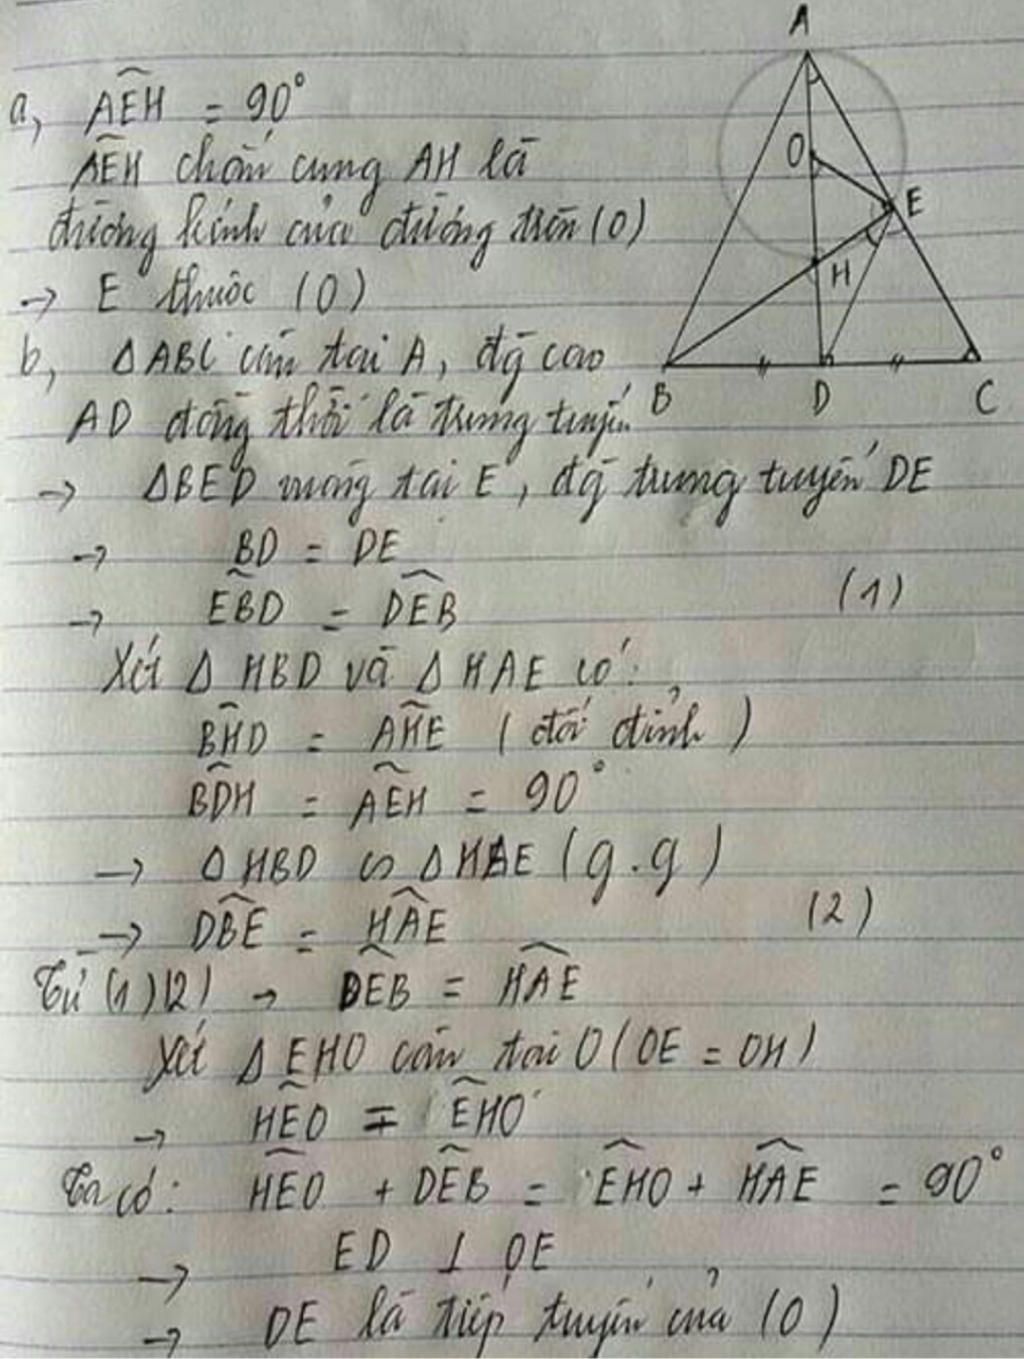 A
a, AEH = 90°
AEH chắn cung AH là
O
đường kính của đường tròn (O)
E
→ E thuộc (O)
H
b, ΔABC cân tại A, đg cao
B
D
C
AD đồng thời là trung tuyến
→ ΔBED vuông tại E, đg trung tuyến DE
→ BD = DE
→ EBD = DEB (1)
Xét Δ HBD và Δ HAE có:
BHD = AHE (đối đỉnh)
BDH = AEH = 90°
→ ΔHBD ∽ ΔHAE (g.g)
→ DBE = HAE (2)
Từ (1)(2) → DEB = HAE
Xét ΔEHO cân tại O (OE = OH)
→ HEO = EHO
Ta có: HEO + DEB = EHO + HAE = 90°
→ ED ⊥ OE
→ DE là tiếp tuyến của (O)